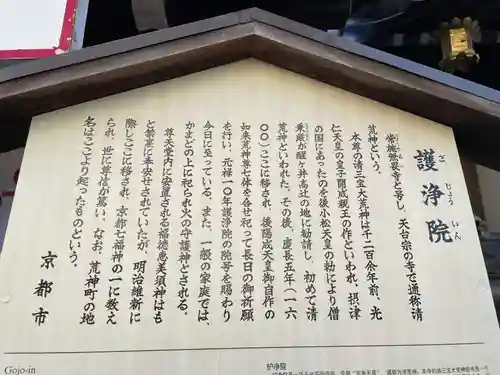 護浄院
ご じょう いん
常施無畏寺と号し、天台宗の寺で通称清
荒神という。
本尊の清三宝大荒神は千二百余年前、光
仁天皇の皇子開成親王の作といわれ、摂津
の国にあったのを後小松天皇の勅により僧
乗厳が醒ヶ井高辻の地に勧請し、初めて清
荒神といわれた。その後、慶長五年(一六
〇〇)ここに移され、後陽成天皇御自作の
如来荒神尊七体を合せ祀って長日の御祈願
を行い、元禄一〇年護浄院の院号を賜わり
今日に至っている。また、一般の家庭では、
かまどの上に祀られ火の守護神とされる。
尊天堂内に安置される福徳恵美須神はも
と禁裏に奉安せされていたが、明治維新に
際しここに移され、京都七福神の一に数え
られ、世に尊信が篤い。なお、荒神町の地
名はここより起ったものという。
京都市
Gojo-in
护净院